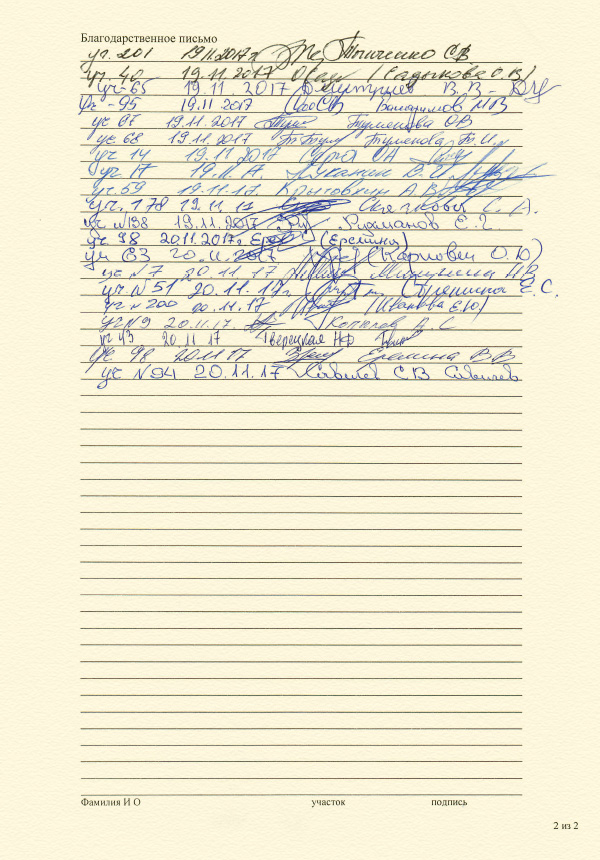 Благодарственное письмо
уч. 201 19.11.2017г
уч. 40 19.11.2017 (Садыкова О.В)
уч-65 19.11.2017 Дмитриев В.В.
уч-95 19.11 2017
уч 67 19.11.2017 Туменова ОВ
уч. 68 19.11.2017 Туменова Т.И.
уч 14 19.11.2017
уч 17 19.11.17 Луканин Д.И
уч. 59 19.11.17. Крытовкин А.В.
уч. 178 19.11.17 С. А.
уч N138 19.11.2017 Рухманов Е.Г.
уч. 98 20.11.2017г. (Еремина)
уч 63 20.11.2017 (Карпович О.Ю)
уч N7 20.11.17 НВ
уч N51 20.11.17г. Е.С.
уч N200 20.11.17 (Иванова Е.Ю)
уч N9 20.11.17. Копылов А.С
уч 43 20.11 17 Тверецкая НФ
уч. 98 20.11.17 Еремина В.В
уч N94 20.11.17 Савичев СВ Савичев
Фамилия И О участок подпись
2 из 2